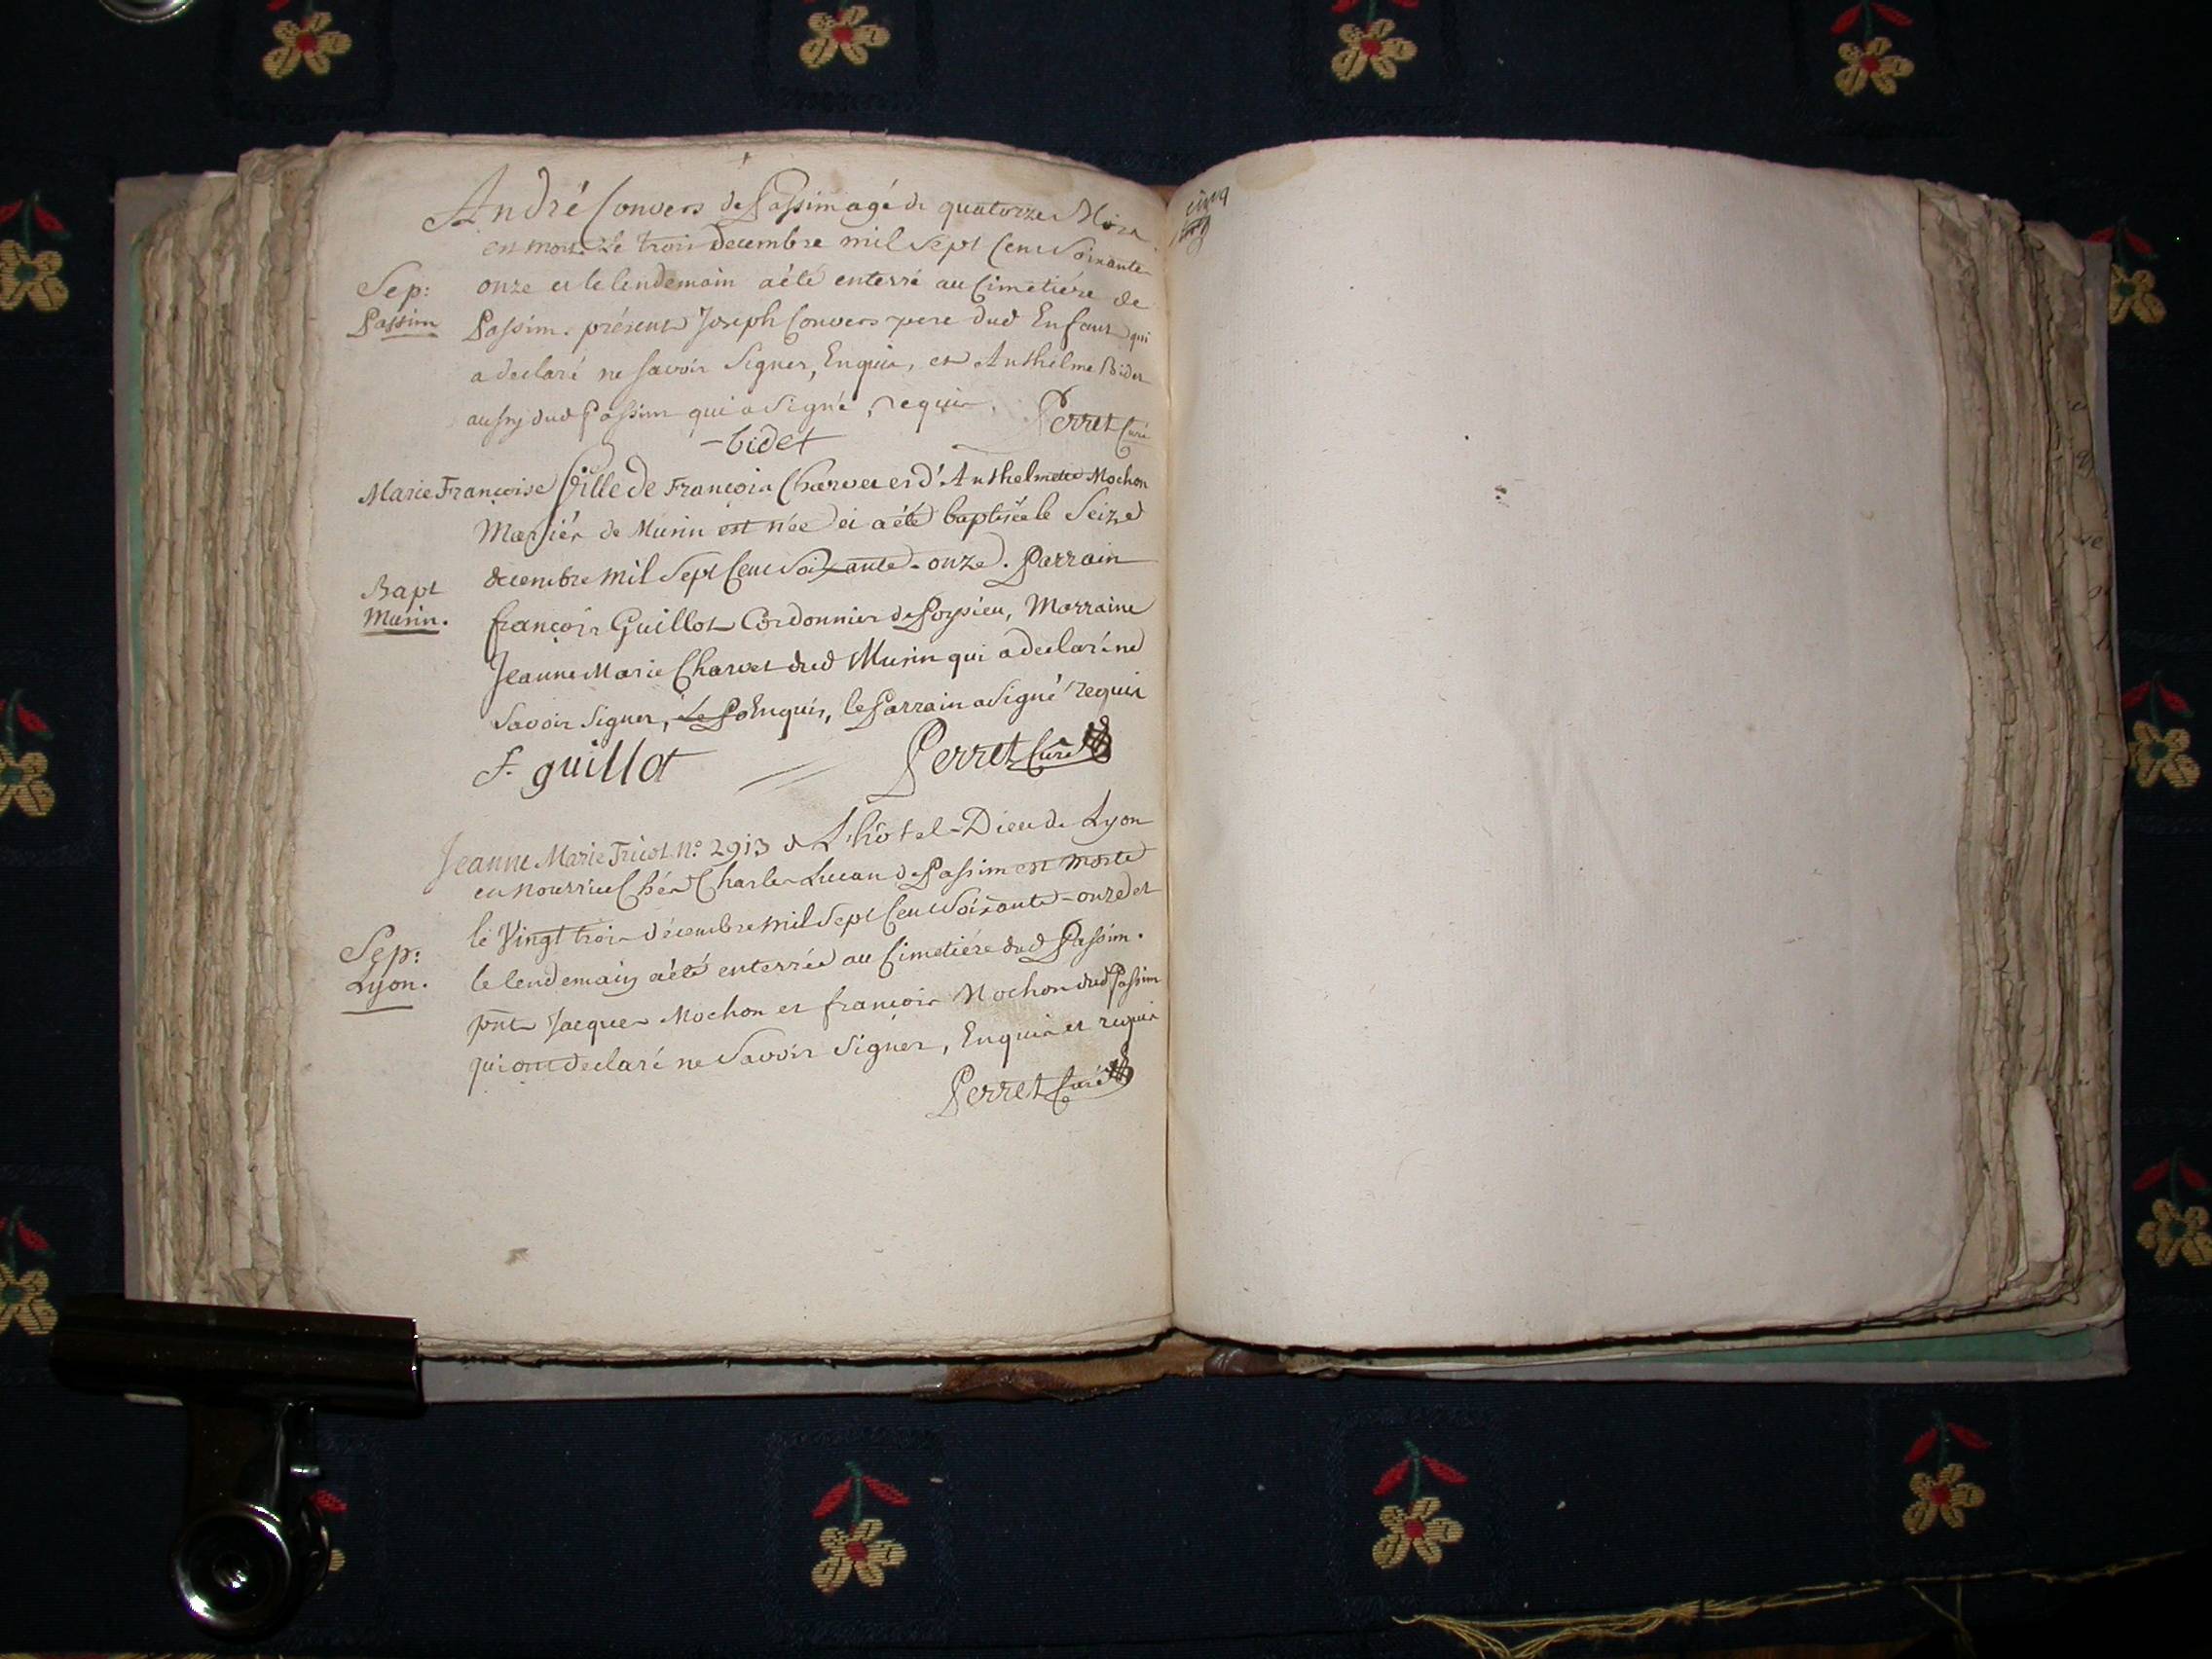 André Convers de Passim agé de quatorze Mois
est mort le trois decembre mil sept cent soixante
Sep: onze et le lendemain a été enterré au Cimetiére de
Passim Passim. présents Joseph Convers pere dud Enfant qui
a declaré ne savoir signer, Enquis, et Anthelme Bidet
aussy dud Passim qui a signé, requis. Perret Curé
bidet
Marie Françoise fille de François Charvet et d'Anthelmette Mochon
Mariés de Murin est née et a été baptisée le seize
decembre mil sept cent soixante-onze. Parrain
Bapt
Murin. françois Guillot Cordonnier de Poysieu, Marraine
Jeanne Marie Charvet dud Murin qui a declaré ne
savoir signer, Enquis, le Parrain a signé requis
f. guillot Perret Curé
Jeanne Marie Tricot n° 2913 de L'hôtel-Dieu de Lyon
en nourrice Chés Charles Lucan de Passim est morte
le Vingt trois décembre mil sept cent soixante-onze et
Sep: le lendemain a été enterrée au Cimetiére dud Passim.
Lyon. pnts Jacques Mochon et françois Mochon dud Passim
qui ont declaré ne savoir signer, Enquis et requis
Perret Curé
cinq